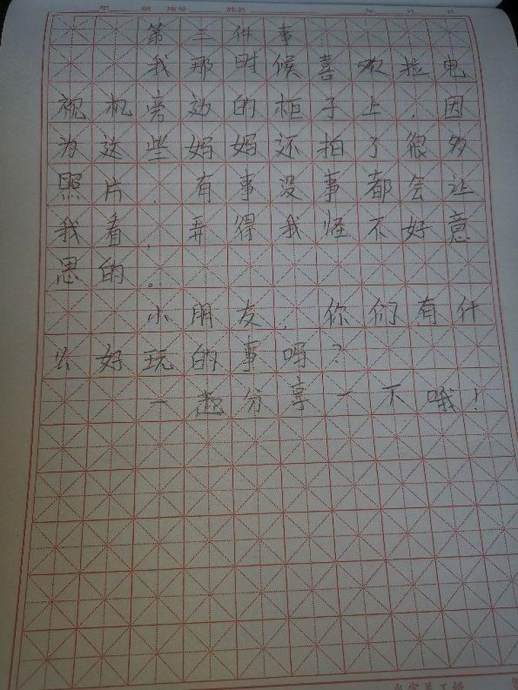 第三件事
我那时候喜欢拉电
视机旁边的柜子上,因
为这些妈妈还拍了很多
照片,有事没事都会让
我看,弄得我怪不好意
思的。
小朋友,你们有什
么好玩的事吗?
一起分享一下哦!